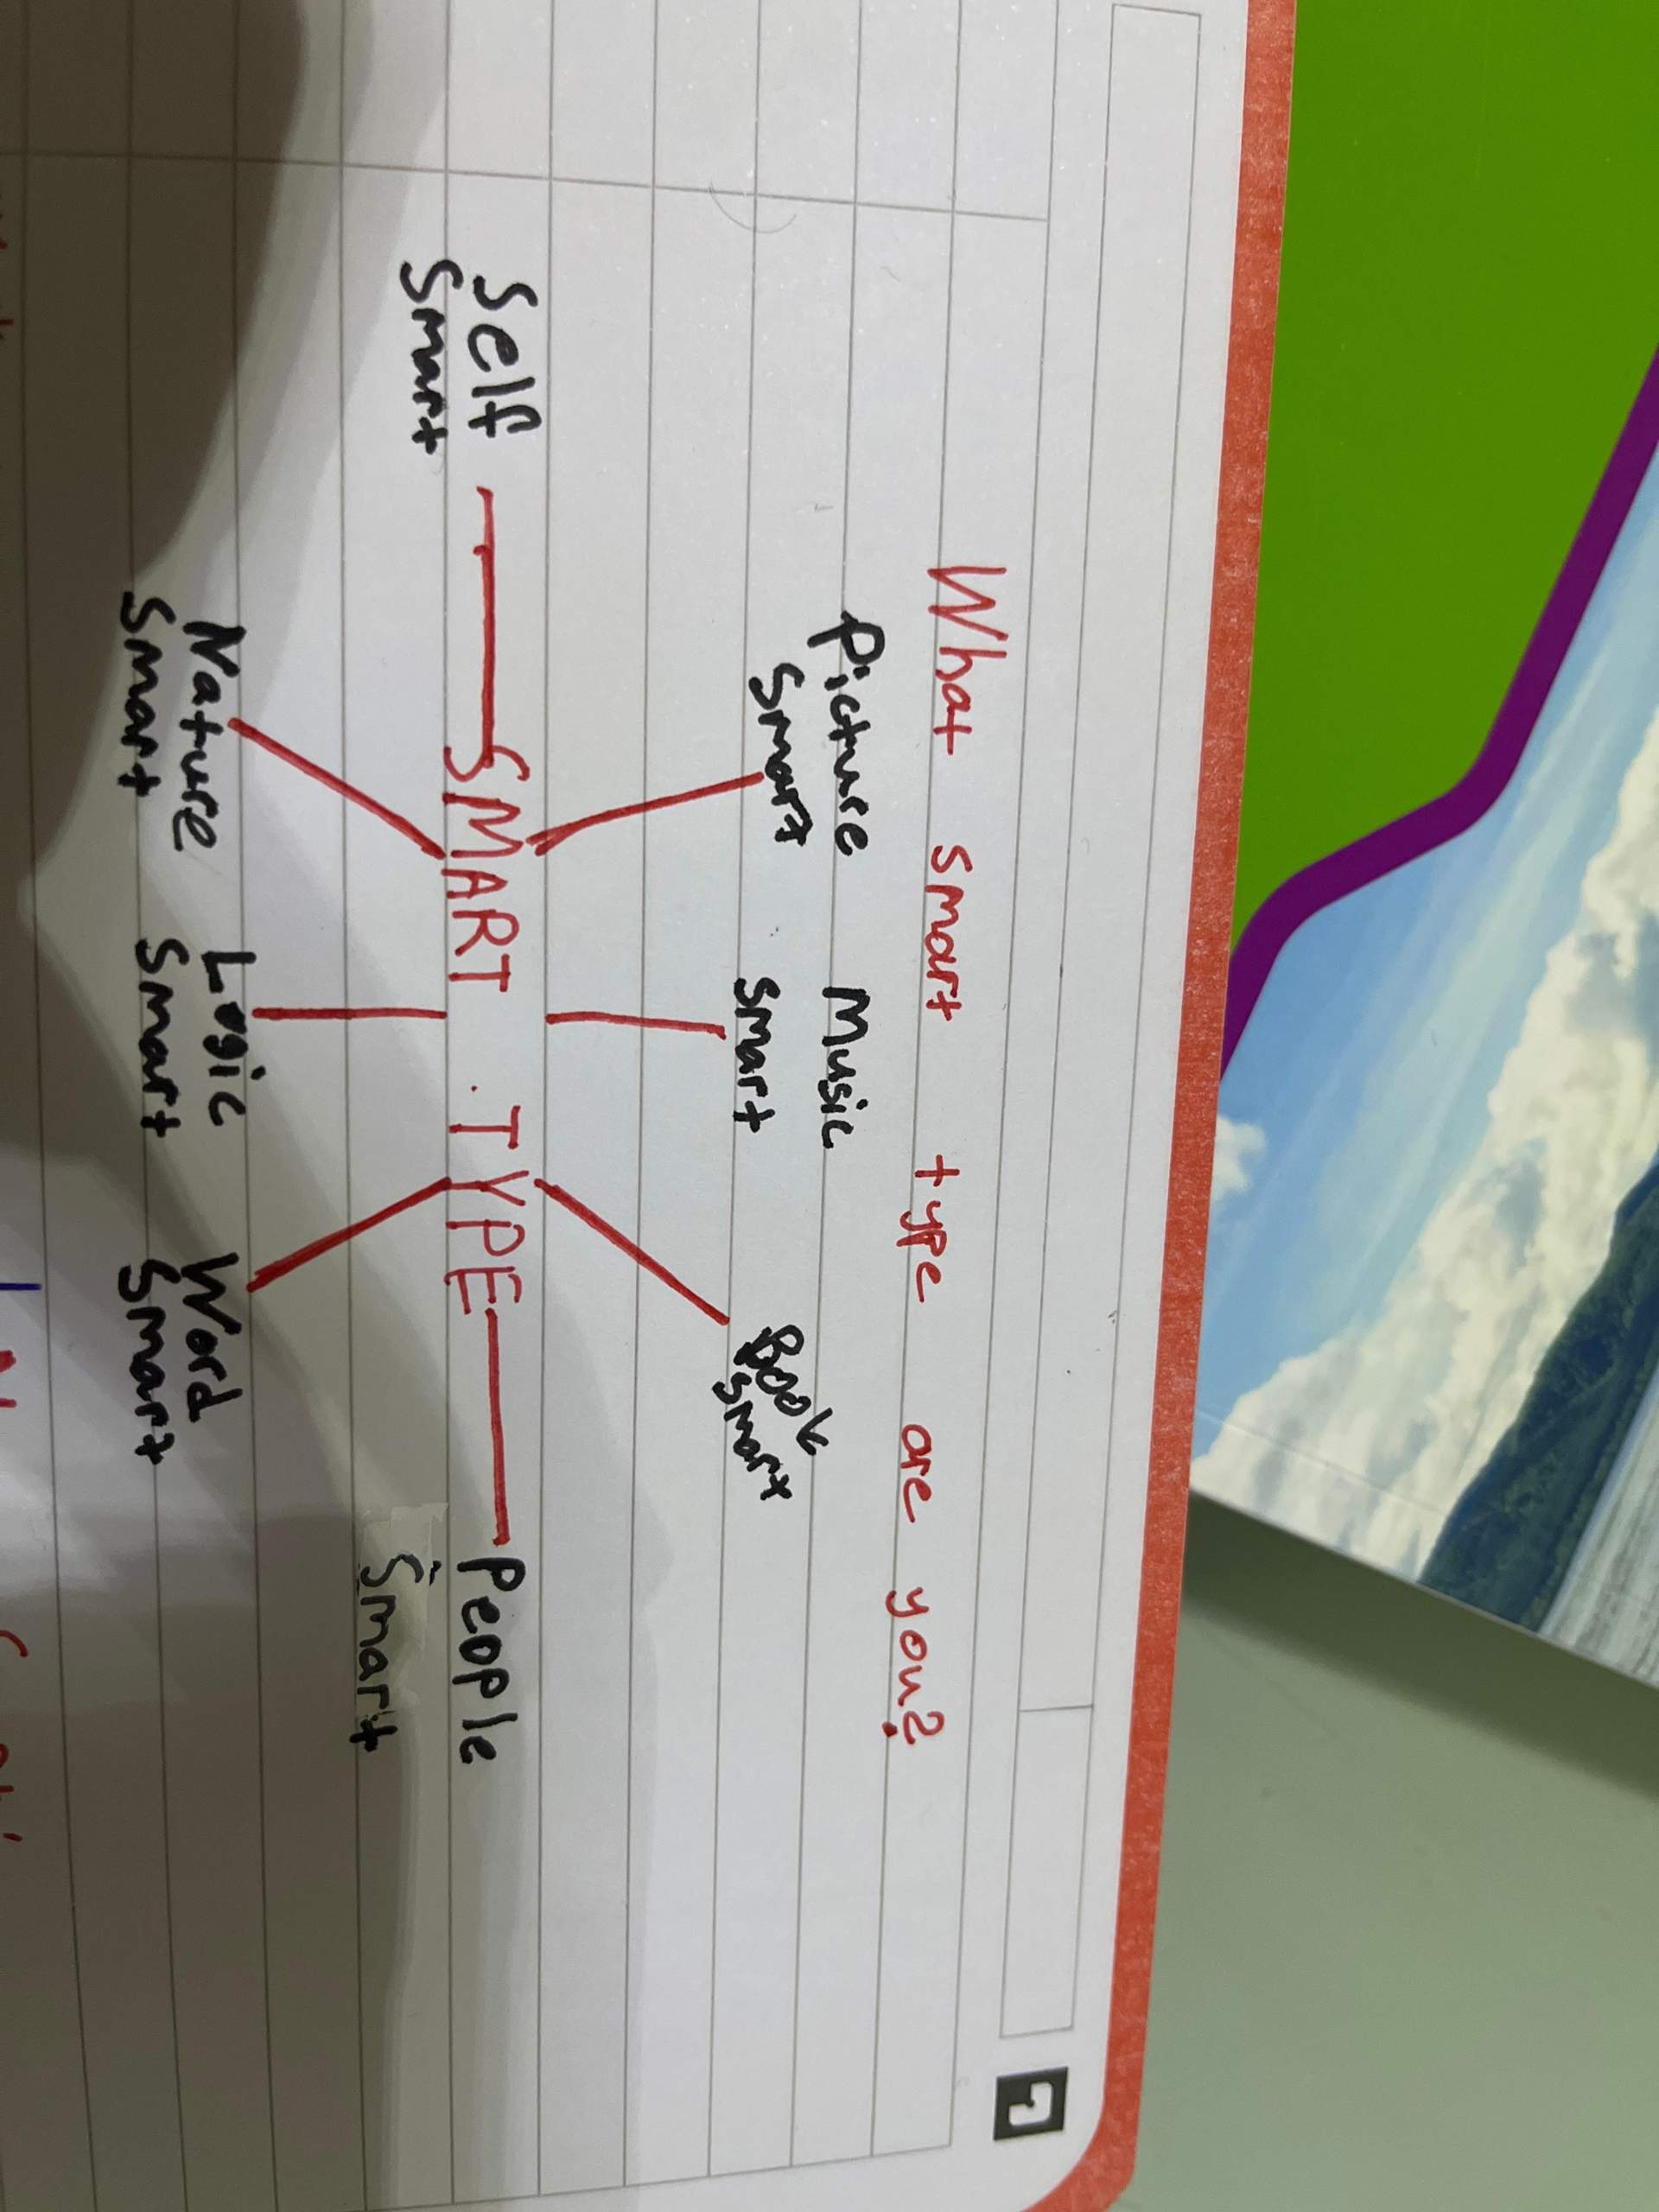 What smart type are you?
Picture
Smart
Music
Smart
Book
Smart
Self
Smart
SMART TYPE
People
Smart
Nature
Smart
Logic
Smart
Word
Smart